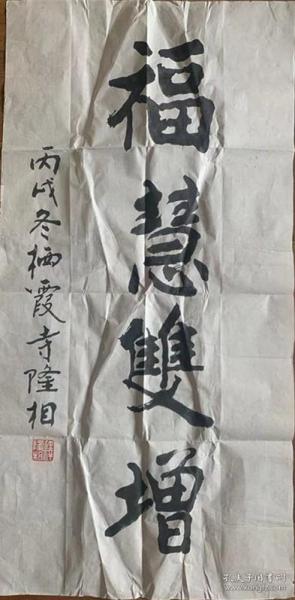 福慧雙增
丙戌冬栖霞寺隆相
孔夫子旧书网